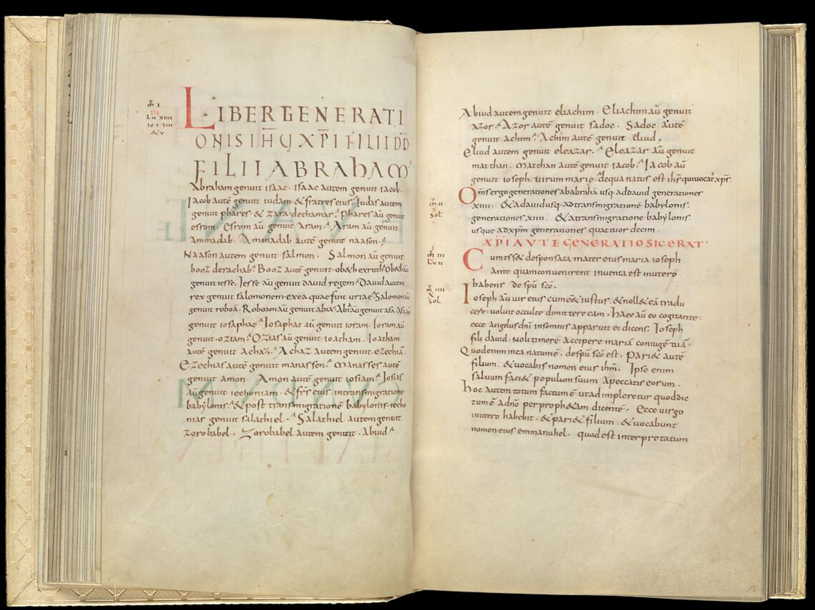 LIBER GENERATI
ONIS IHU XPI FILII DD
FILII ABRAHAM
Abraham genuit isaac. Isaac autem genuit iacob.
Iacob autē genuit iudam. & fratres eius. Iudas autem
genuit phares & zara dethamar. Phares aū genuit
esrom. Esrom aū genuit Aram. Aram aū genuit
aminadab. Aminadab autē genuit naason.
Naason autem genuit salmon. Salmon aū genuit
booz derachab. Booz autē genuit obeth exruth. Obeth aū
genuit iesse. Iesse aū genuit david regem. David autem
rex genuit salomonem exea quae fuit uriae. Salomon aū
genuit roboā. Roboam aū genuit abia. Abia aū genuit asa. Asa aū
genuit iosaphae. Iosaphat aū genuit ioram. Ioram aū
genuit oziam. Ozias aū genuit ioatham. Ioatham
autē genuit achaz. Achaz autem genuit ezechiā
Ezechias autē genuit manassen. Manasses autē
genuit amon. Amon autē genuit iosiam. Iosias
aū genuit iechoniam & frs eius intransmigratione
babylonis. & post transmigrationē babylonis iecho
nias genuit salathiel. Salathiel autem genuit
zorobabel. Zorobabel autem genuit. Abiud
Abiud autem genuit eliachim. Eliachim aū genuit
azor. Azor autē genuit sadoc. Sadoc autē
genuit achim. Achim autē genuit eliud.
Eliud autem genuit eleazar. Eleazar aū genuit
matthan. Matthan autē genuit iacob. Iacob aū
genuit ioseph. virum mariae. dequa natus est ihs qui vocat xps.
Oms ergo generationes ababraha usq. addavid generationes
xiiii. & adavid usq. adtransmigrationē babylonis.
generationes xiiii. & atransmigratione babylonis
usque adxpm generationes quattuor decim.
XPI AUTĒ GENERATIO SIC ERAT
Cum esset desponsata mater eius maria ioseph
Ante quam convenirent inventa est inutero
habens de spu sco.
Ioseph aū vir eius cum eēt iustus. & nollet eā tradu
cere. voluit occulte dimittere eam. haec aū eo cogitante
ecce angelus dni insomnis apparuit ei dicens. Ioseph
fili david. Noli timere accipere mariā coniugē tuā.
Quod enim inea natum ē. de spu sco est. Pariet autē
filium. & vocabis nomen eius ihm. Ipse enim
salvum faciet populum suum. Apeccatis eorum.
Hoc autem totum factum ē ut adimpleretur quod dic
tum ē adno per prophetam dicentē. Ecce virgo
inutero habebit. & pariet filium. & vocabunt
nomen eius emmanuhel. quod est interpretatum